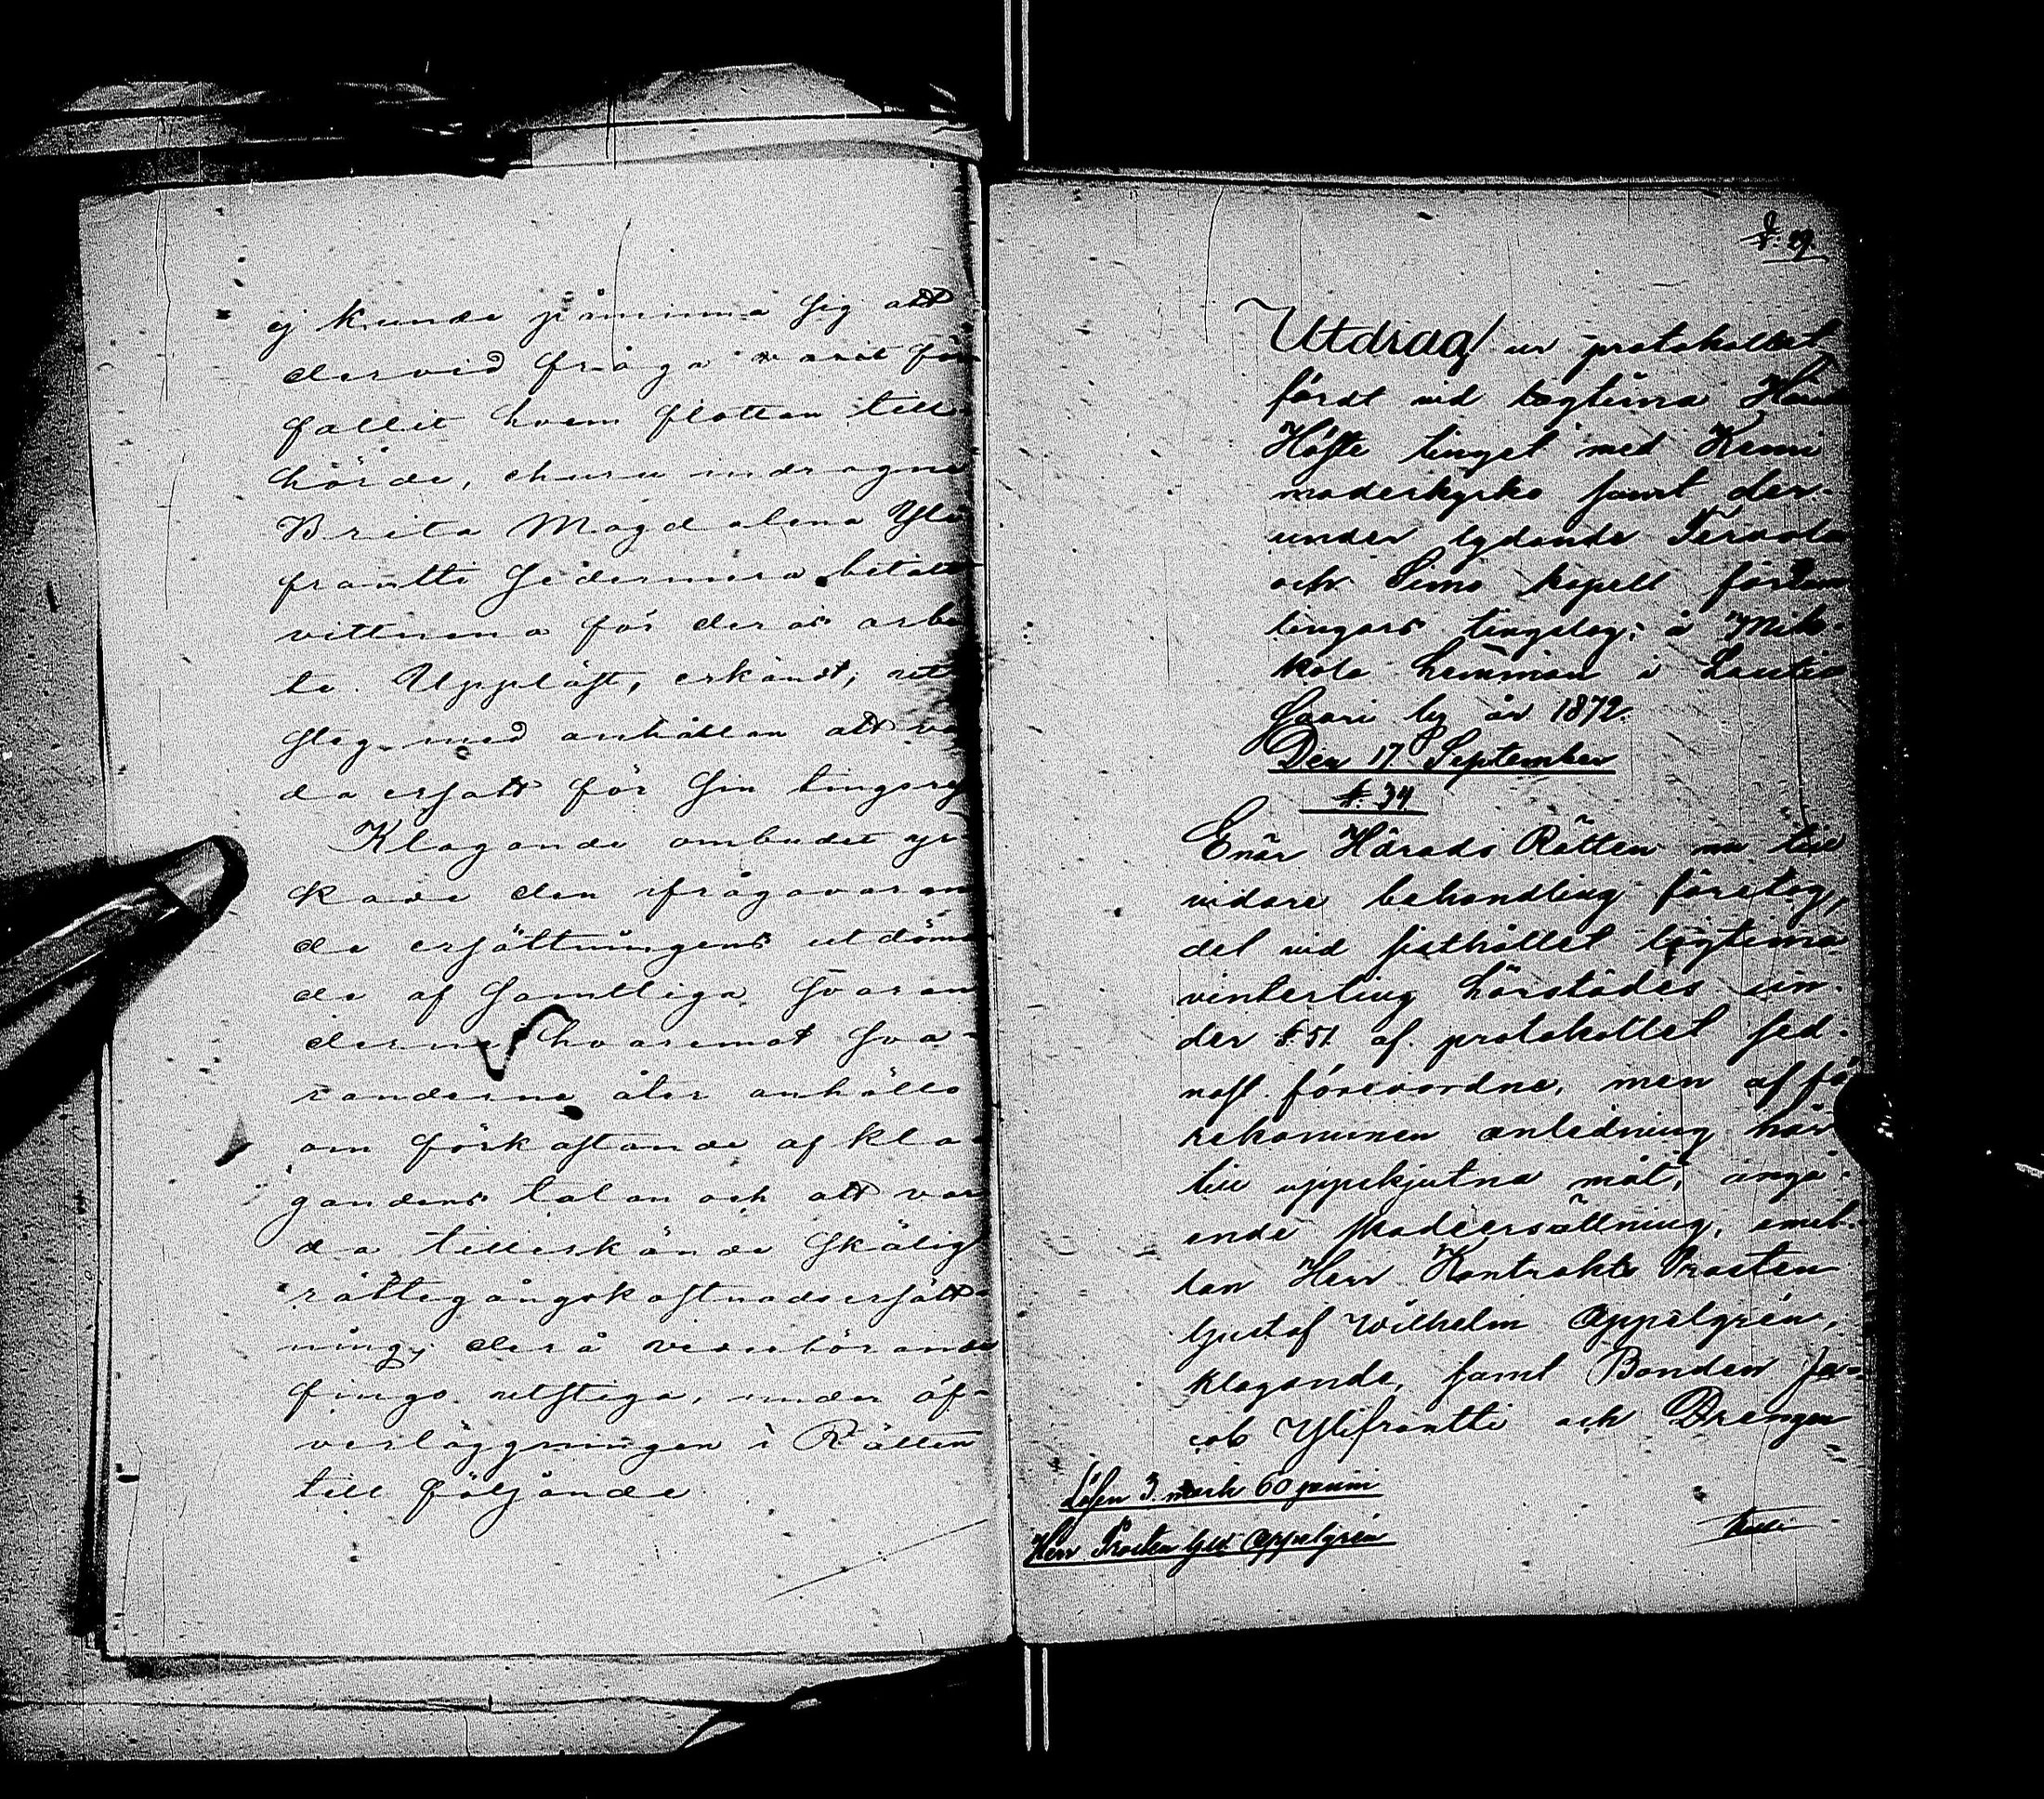 ej kunde påminna sig att
dervid fråga varit för
fallit hvem flottan till-
hörde, ehuru indragna
Brita Magdalena Yli
frantti sedermera betalt
vittnena för deras arbe
te. Uppläst, erkändt, ut
steg med anhållan att var
da ersatt för sin tingsre
Klagande ombudet yr-
kade den ifrågavaran
de ersättningens utdöman
de af samtliga Svaran
derne hvaremot Sva-
randerne åter anhöllo
om förkastande af kla-
gandens talan och att var
da tillerkände skälig
rättegångskostnadsersätt-
ning; derå vederbörande
fingo utstiga, under öf-
verläggningen i Rätten
till följande
Utdrag ur protokollet
fördt vid lagtima
Höste tinget med Kemi
moderkyrko samt der-
under lydande Tervola
och Simo kapell
tingars tingslag; å Mik-
kola hemman i Lautio
saari by år 1872.
Den 17 September
§. 34
Enär Härads Rätten nu till
vidare behandling företog,
det vid sisthållet lagtima
vinterting härstädes un-
der §. 51 af protokollet sed-
nast förevordne, men af fö
rekommen anledning här
till uppskjutna mål, angå-
ende skadeersättning, emel-
lan Herr Kontrakts Prosten
Gustaf Wilhelm Appelgrén,
klagande, samt Bonden Ja-
cob Ylifrantti och Drengen
Lösen 3. mark 60 penni
Herr Prosten G.W. Appelgrén